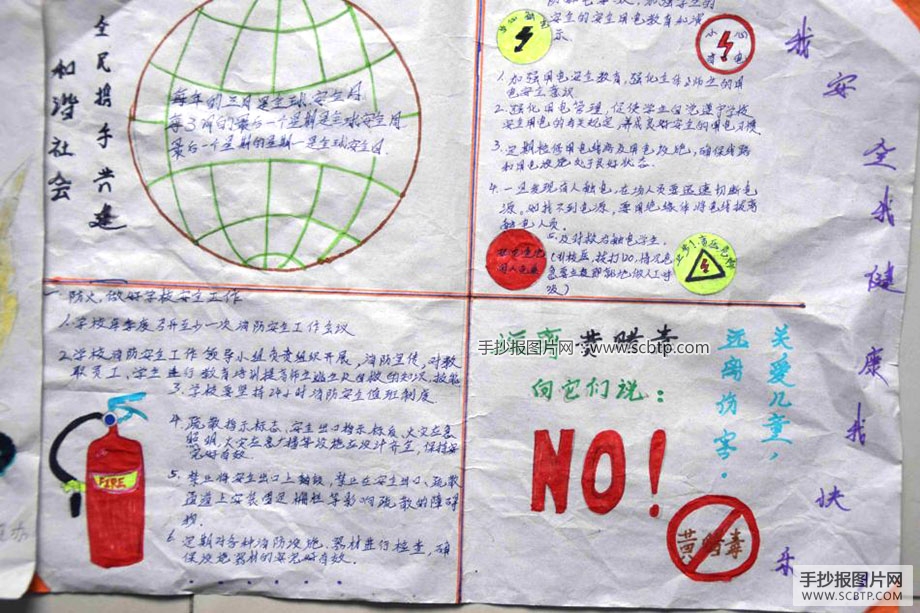 全民携手共建
和谐社会
每年的三月是全球安全月
每3月的最后一个星期是全球安全周
最后一个星期的星期一是全球安全日.
安全的安全用电教育如漫
示.
小心
有电
1. 加强用电安全教育,强化全体师生的用
电安全意识.
2. 强化用电管理,促使学生自觉遵守学校
安全用电的有关规定,养成良好安全的用电习惯
3. 定期检修用电线路及用电设施,确保线路
和用电设施处于良好状态.
4. 一旦发现有人触电,在场人员要迅速切断电
源。如找不到电源,要用绝缘体将电线拨离
触电人员.
5. 及时救治触电学生.
急要立即就地做人工呼
吸)
一.防火,做好学校安全工作
1. 学校每季度召开至少一次消防安全工作会议
2. 学校消防安全工作领导小组负责组织开展,消防宣传,对教
职员工、学生进行教育培训提高师生逃生及自救的知识、技能
3. 学校要坚持24小时消防安全值班制度
4. 疏散指示标志,安全出口指示标志,火灾应急
照明,火灾应急广播等设施应设计齐全,保持安
完好有效.
5. 禁止将安全出口上锁,禁止在安全出口、疏散
通道上安装固定栅栏等影响疏散的障碍
物.
6. 定期对各种消防设施、器材进行检查,确
保设施器材的完好有效.
FIRE
远离 黄赌毒
向它们说:
NO!
黄赌毒
关爱儿童,
远离伤害.
我安全我健康我快乐
手抄报图片网 www.scbtp.com
手抄报图片网
WWW.SCBTP.COM